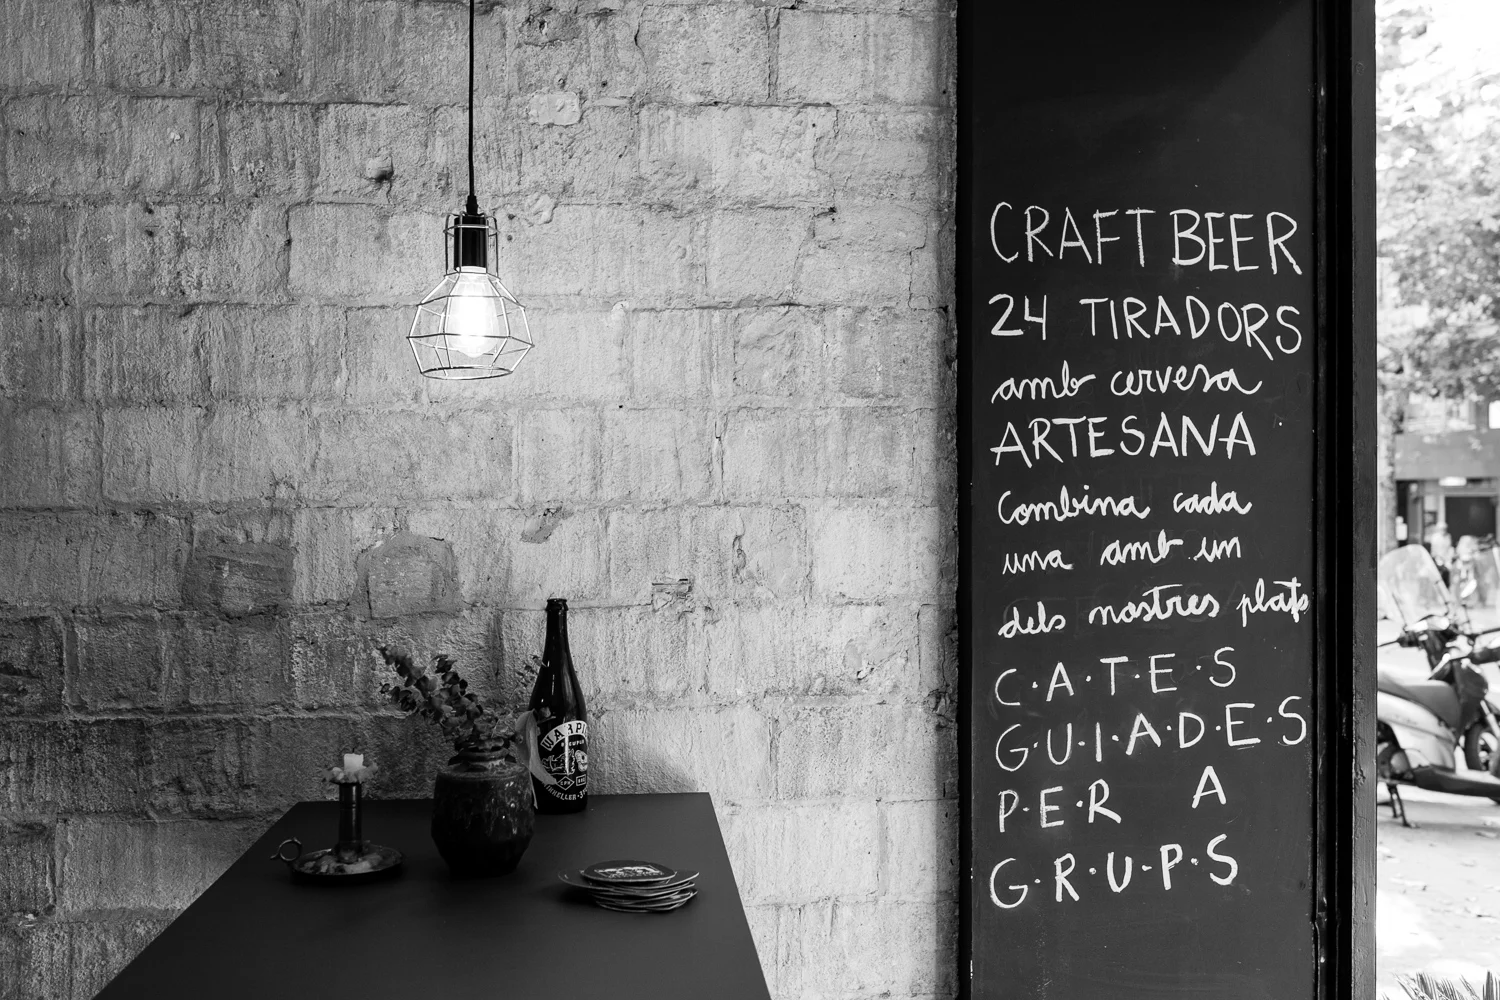 CRAFT BEER
24 TIRADORS
amb cervesa
ARTESANA
Combina cada
una amb un
dels nostres plats
C·A·T·E·S
G·U·I·A·D·E·S
P·E·R A
G·R·U·P·S